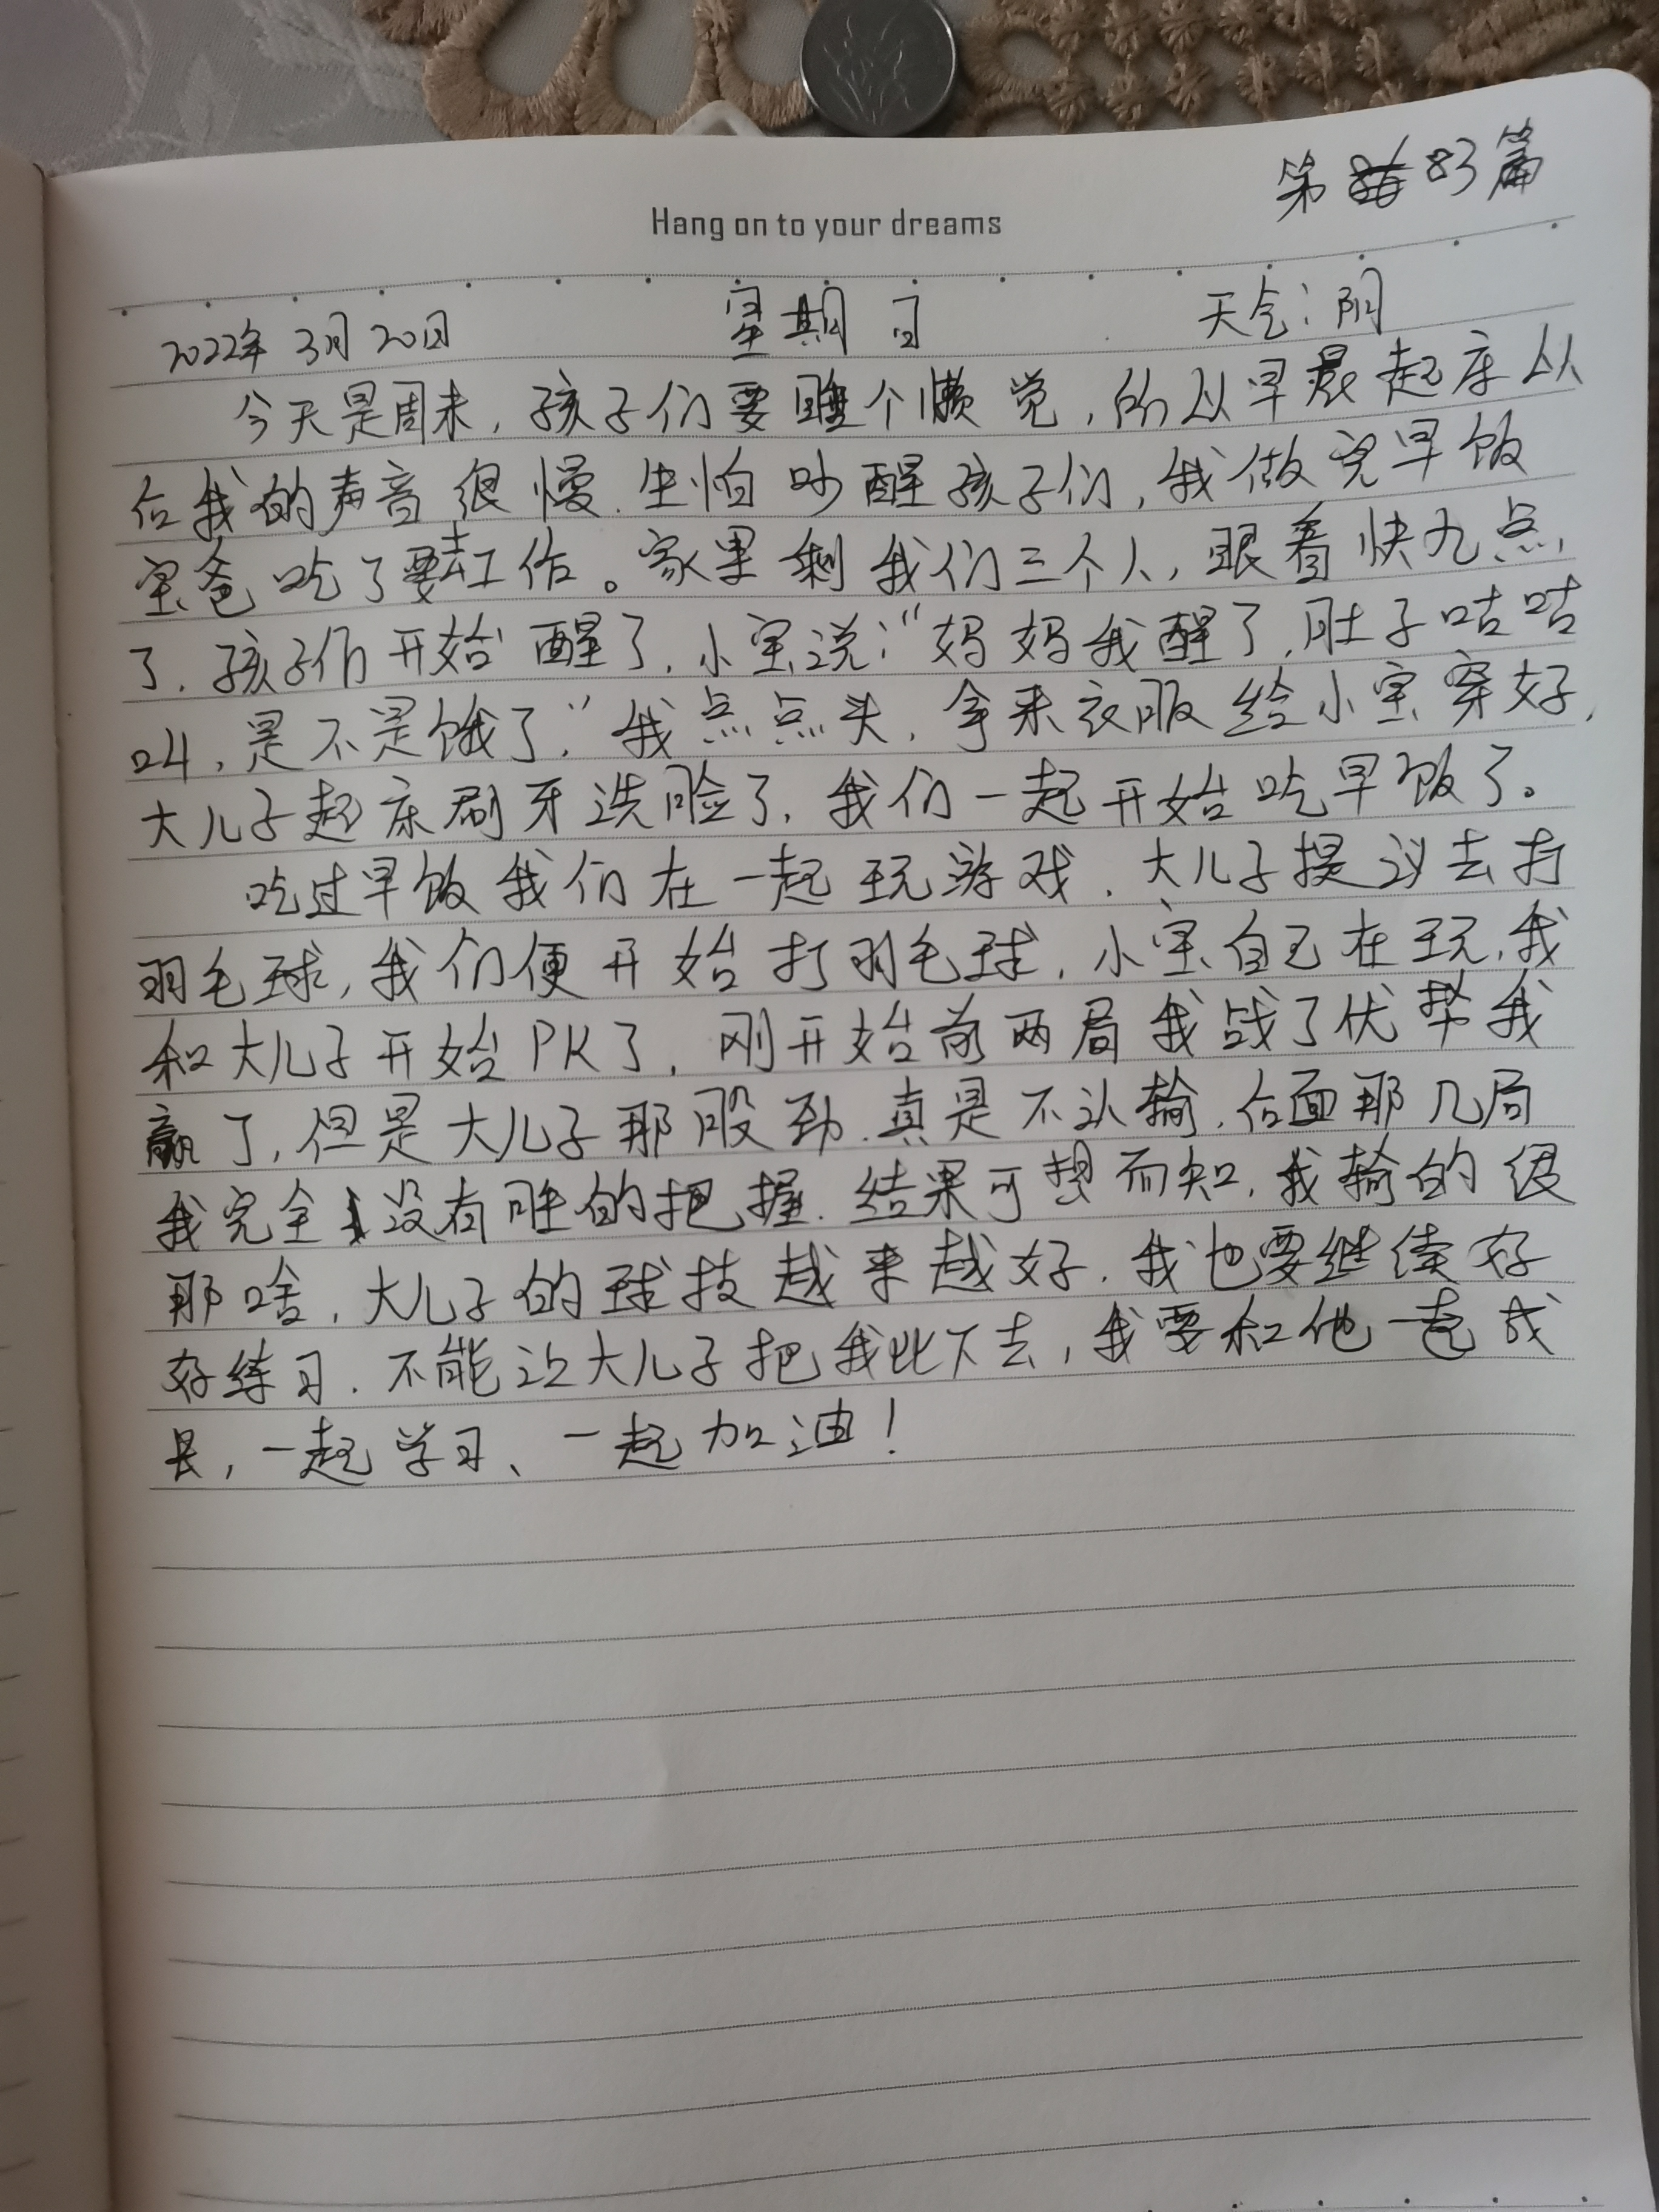 第83篇
Hang on to your dreams
2022年3月20日 星期日 天气:阴
今天是周末,孩子们要睡个懒觉,所以早晨起床以
后我的声音很慢.生怕吵醒孩子们,我做完早饭
宝爸吃了要去工作。家里剩我们三个人,眼看快九点
了.孩子们开始醒了.小宝说:“妈妈我醒了,肚子咕咕
叫,是不是饿了.”我点点头,拿来衣服给小宝穿好,
大儿子起床刷牙洗脸了.我们一起开始吃早饭了。
吃过早饭我们在一起玩游戏.大儿子提议去打
羽毛球,我们便开始打羽毛球.小宝自己在玩,我
和大儿子开始PK了,刚开始前两局我战了优势我
赢了,但是大儿子那股劲.真是不认输.后面那几局
我完全没有胜的把握.结果可想而知,我输的很
那啥,大儿子的球技越来越好.我也要继续好
好练习.不能让大儿子把我比下去,我要和他一起成
长,一起学习、一起加油!